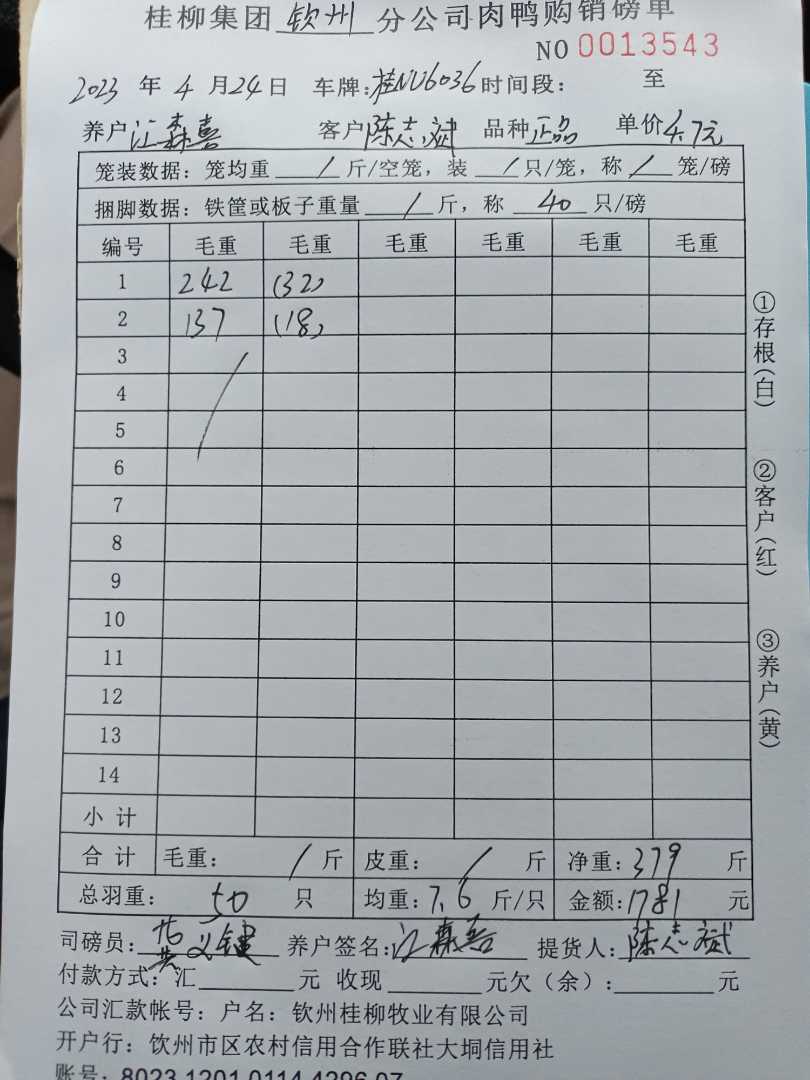 桂柳集团 钦州 分公司肉鸭购销磅单
NO 0013543
2023 年 4 月 24 日 车牌:桂NU6036 时间段: 至
养户 江森喜 客户 陈志斌 品种 正品 单价 4.7元
笼装数据:笼均重 / 斤/空笼,装 / 只/笼,称 / 笼/磅
捆脚数据:铁筐或板子重量 / 斤,称 40 只/磅
编号 毛重 毛重 毛重 毛重 毛重 毛重
1 242 (32)
2 137 (18)
3
4
5
6
7
8
9
10
11
12
13
14
小计
合计 毛重: / 斤 皮重: / 斤 净重:379 斤
总羽重: 50 只 均重:7.6 斤/只 金额:1781 元
司磅员: 黄义键 养户签名:江森喜 提货人:陈志斌
付款方式:汇 元 收现 元欠(余): 元
公司汇款帐号:户名:钦州桂柳牧业有限公司
开户行:钦州市区农村信用合作联社大垌信用社
账号:8023 1201 0114 4296 07
①存根(白)
②客户(红)
③养户(黄)